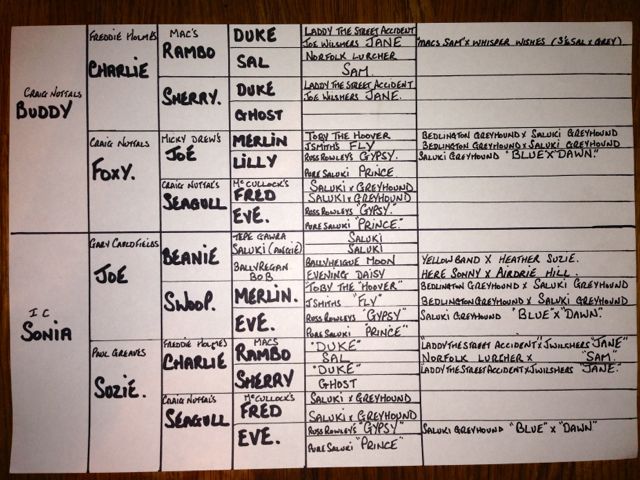 CRAIG NUTTALS
BUDDY
FREDDIE HOLMES
CHARLIE
MAC'S
RAMBO
DUKE
LADDY THE STREET ACCIDENT
JOE WILSHERS JANE
"MACS SAM" x WHISPER WISHES (3/4 SAL x GREY)
SAL
NORFOLK LURCHER
SAM.
SHERRY.
DUKE
LADDY THE STREET ACCIDENT
JOE WILSHERS JANE.
GHOST
CRAIG NUTTALS
FOXY.
MICKY DREW'S
JOE
MERLIN
TOBY THE HOOVER
BEDLINGTON GREYHOUND x SALUKI GREYHOUND
JSMITHS' FLY
BEDLINGTON GREYHOUND x SALUKI GREYHOUND
LILLY
ROSS ROWLEYS GYPSY.
SALUKI GREYHOUND "BLUE"x"DAWN."
PURE SALUKI PRINCE
CRAIG NUTTAL'S
SEAGULL
McCULLOCK'S
FRED
SALUKI x GREYHOUND
SALUKI x GREYHOUND
EVE.
ROSS ROWLEYS "GYPSY."
PURE SALUKI "PRINCE."
I C
SONIA
GARY CARLDFIELDS
JOE
BEANIE
TEPE GAWRA
SALUKI (ANGIE)
SALUKI
SALUKI
BALLYREGAN
BOB
BALLYHEIGUE MOON
YELLOW BAND x HEATHER SUZIE.
EVENING DAISY
HERE SONNY x AIRDRIE HILL.
SWOOP.
MERLIN.
TOBY THE "HOOVER"
BEDLINGTON GREYHOUND x SALUKI GREYHOUND
JSMITHS "FLY"
BEDLINGTON GREYHOUND x SALUKI GREYHOUND
EVE.
ROSS ROWLEYS "GYPSY"
SALUKI GREYHOUND "BLUE"x"DAWN"
PURE SALUKI PRINCE"
PAUL GREAVES
SUZIE.
FREDDIE HOLMES
CHARLIE
MACS
RAMBO
"DUKE"
"LADDY THE STREET ACCIDENT"x JWILCHERS "JANE"
SAL
NORFOLK LURCHER x "SAM."
SHERRY
"DUKE"
LADDY THE STREET ACCIDENT x JWILSHERS "JANE."
GHOST
CRAIG NUTTAL'S
SEAGULL
McCULLOCK'S
FRED
SALUKI x GREYHOUND
SALUKI x GREYHOUND
EVE.
ROSS ROWLEYS "GYPSY"
SALUKI GREYHOUND "BLUE" x "DAWN"
PURE SALUKI "PRINCE"